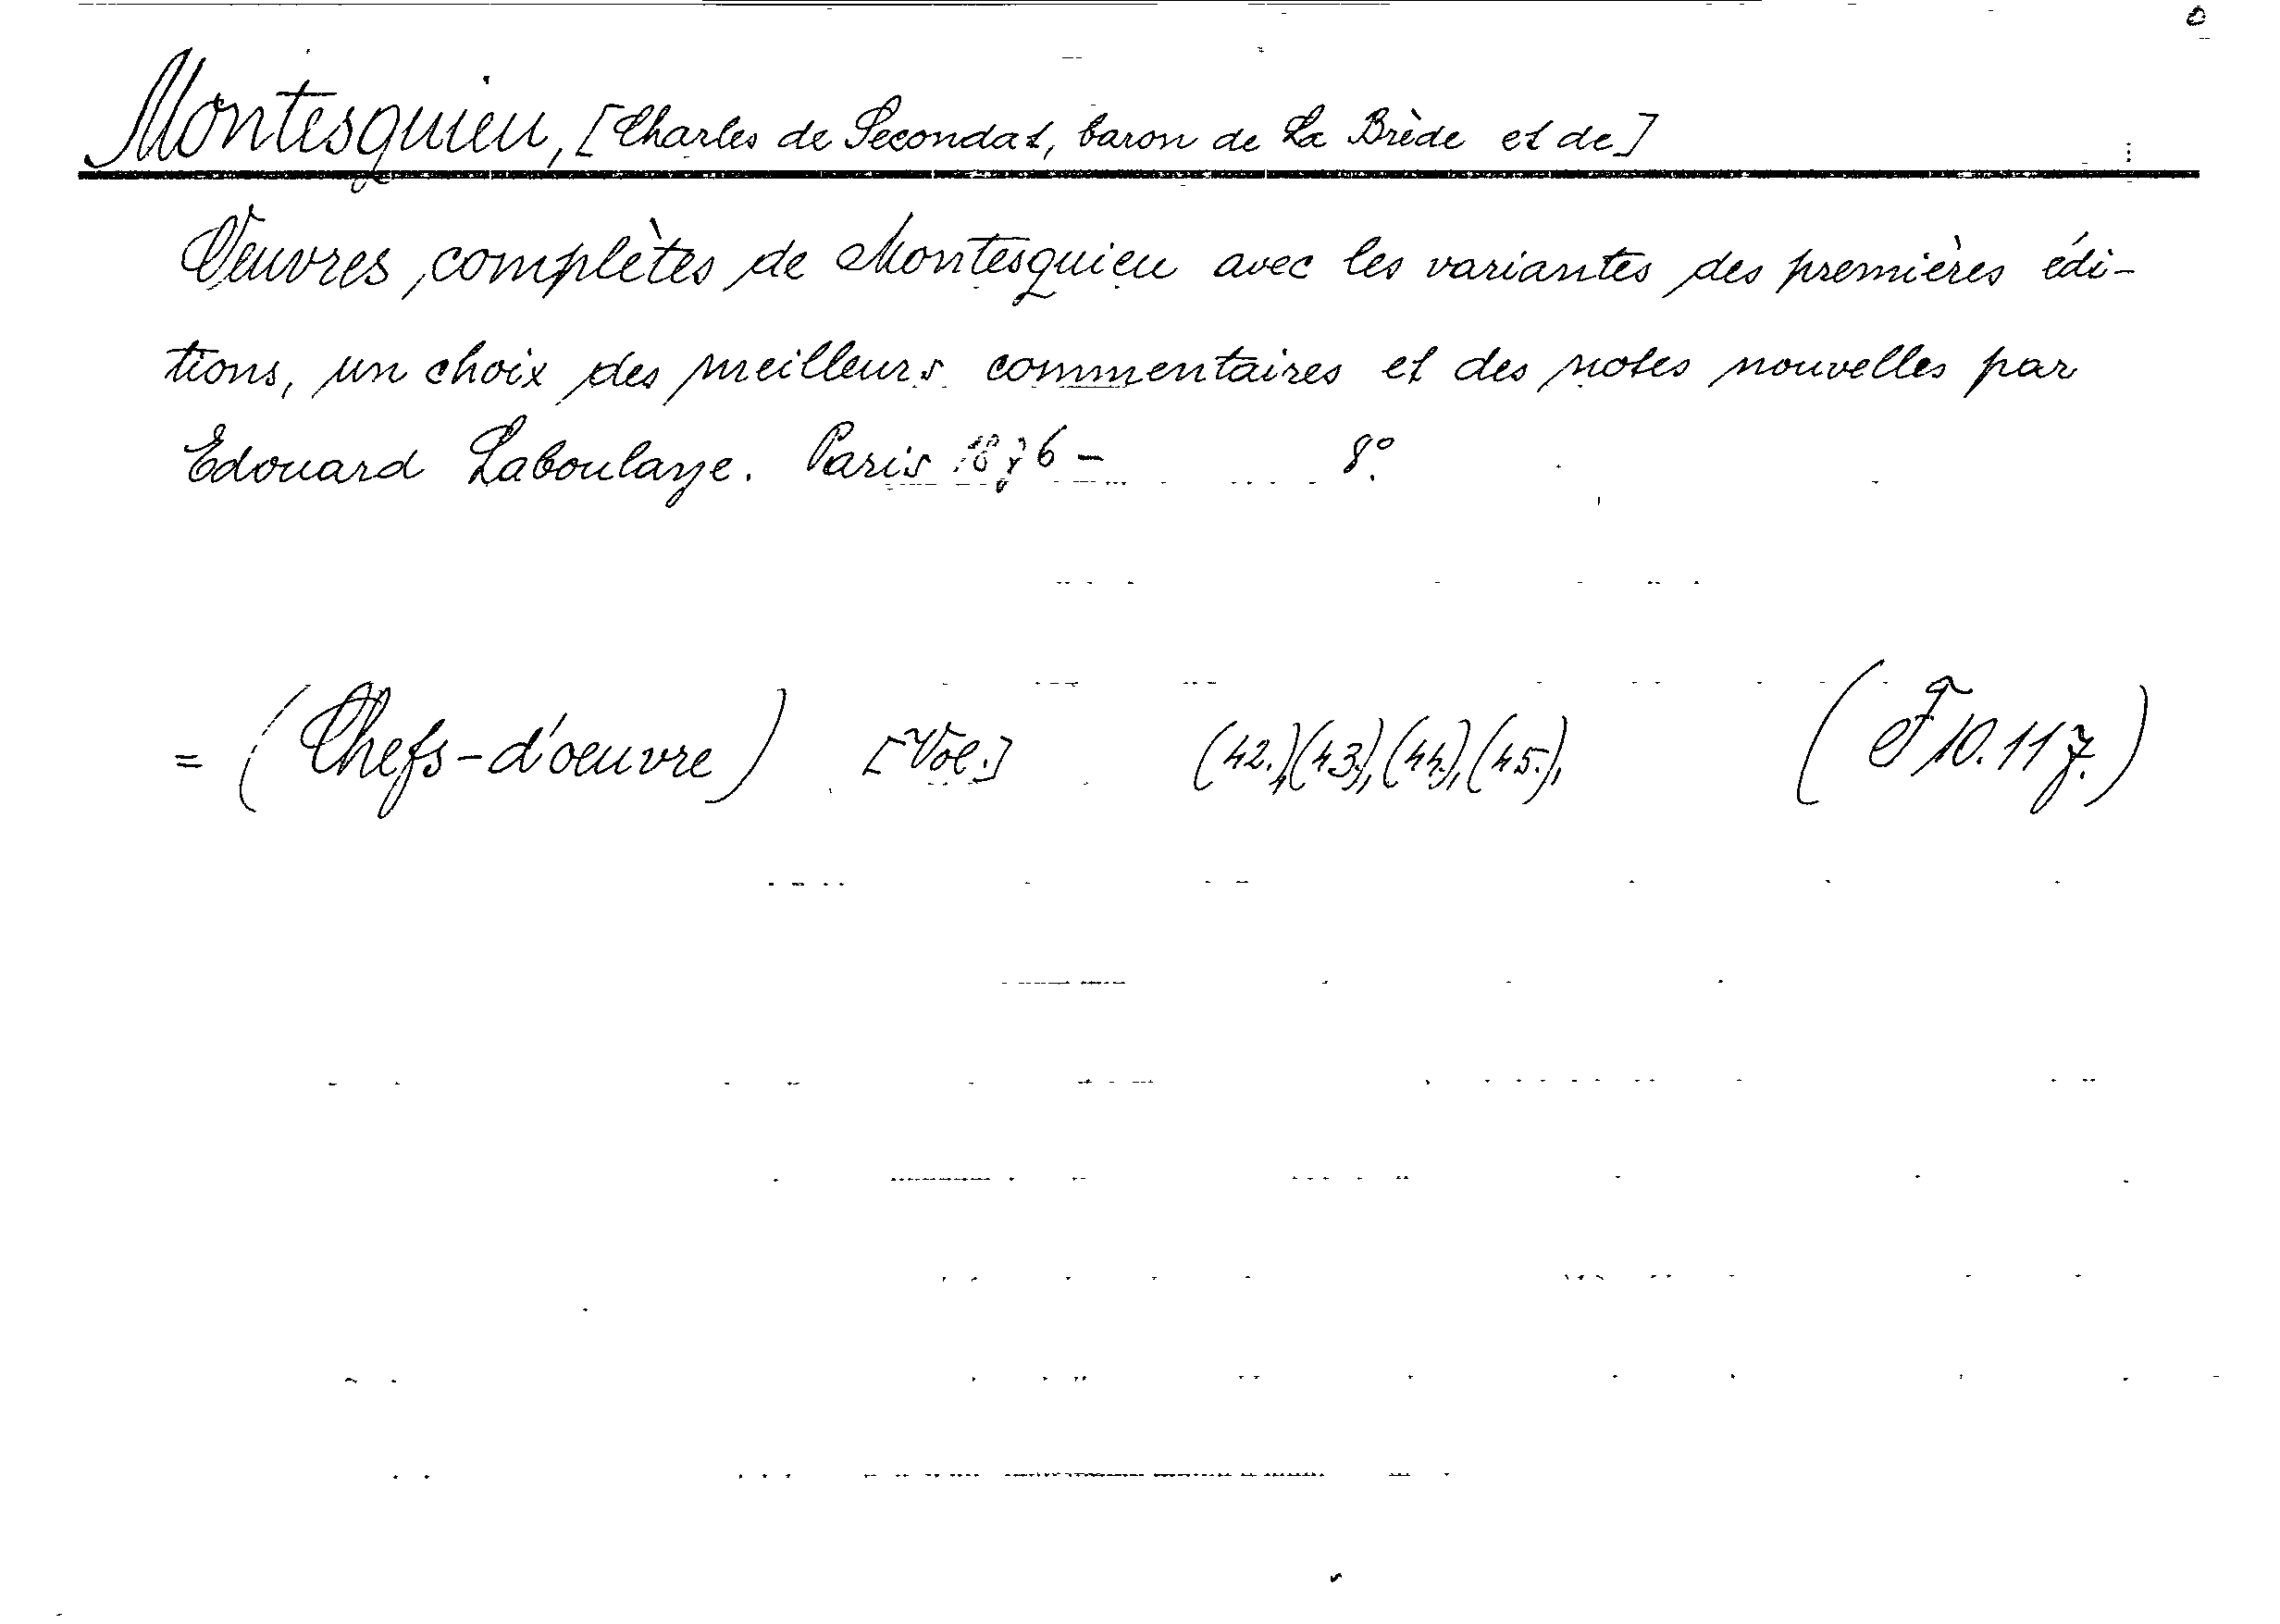 Montesquieu, [Charles de Secondat, baron de La Brède et de]
Oeuvres complètes de Montesquieu avec les variantes des premières édi-
tions, un choix des meilleurs commentaires et des notes nouvelles par
Edouard Laboulaye. Paris 1876- 8°.
= (Chefs-d'oeuvre) [Vol.] (42.),(43.),(44.),(45.), (F 10.117.)